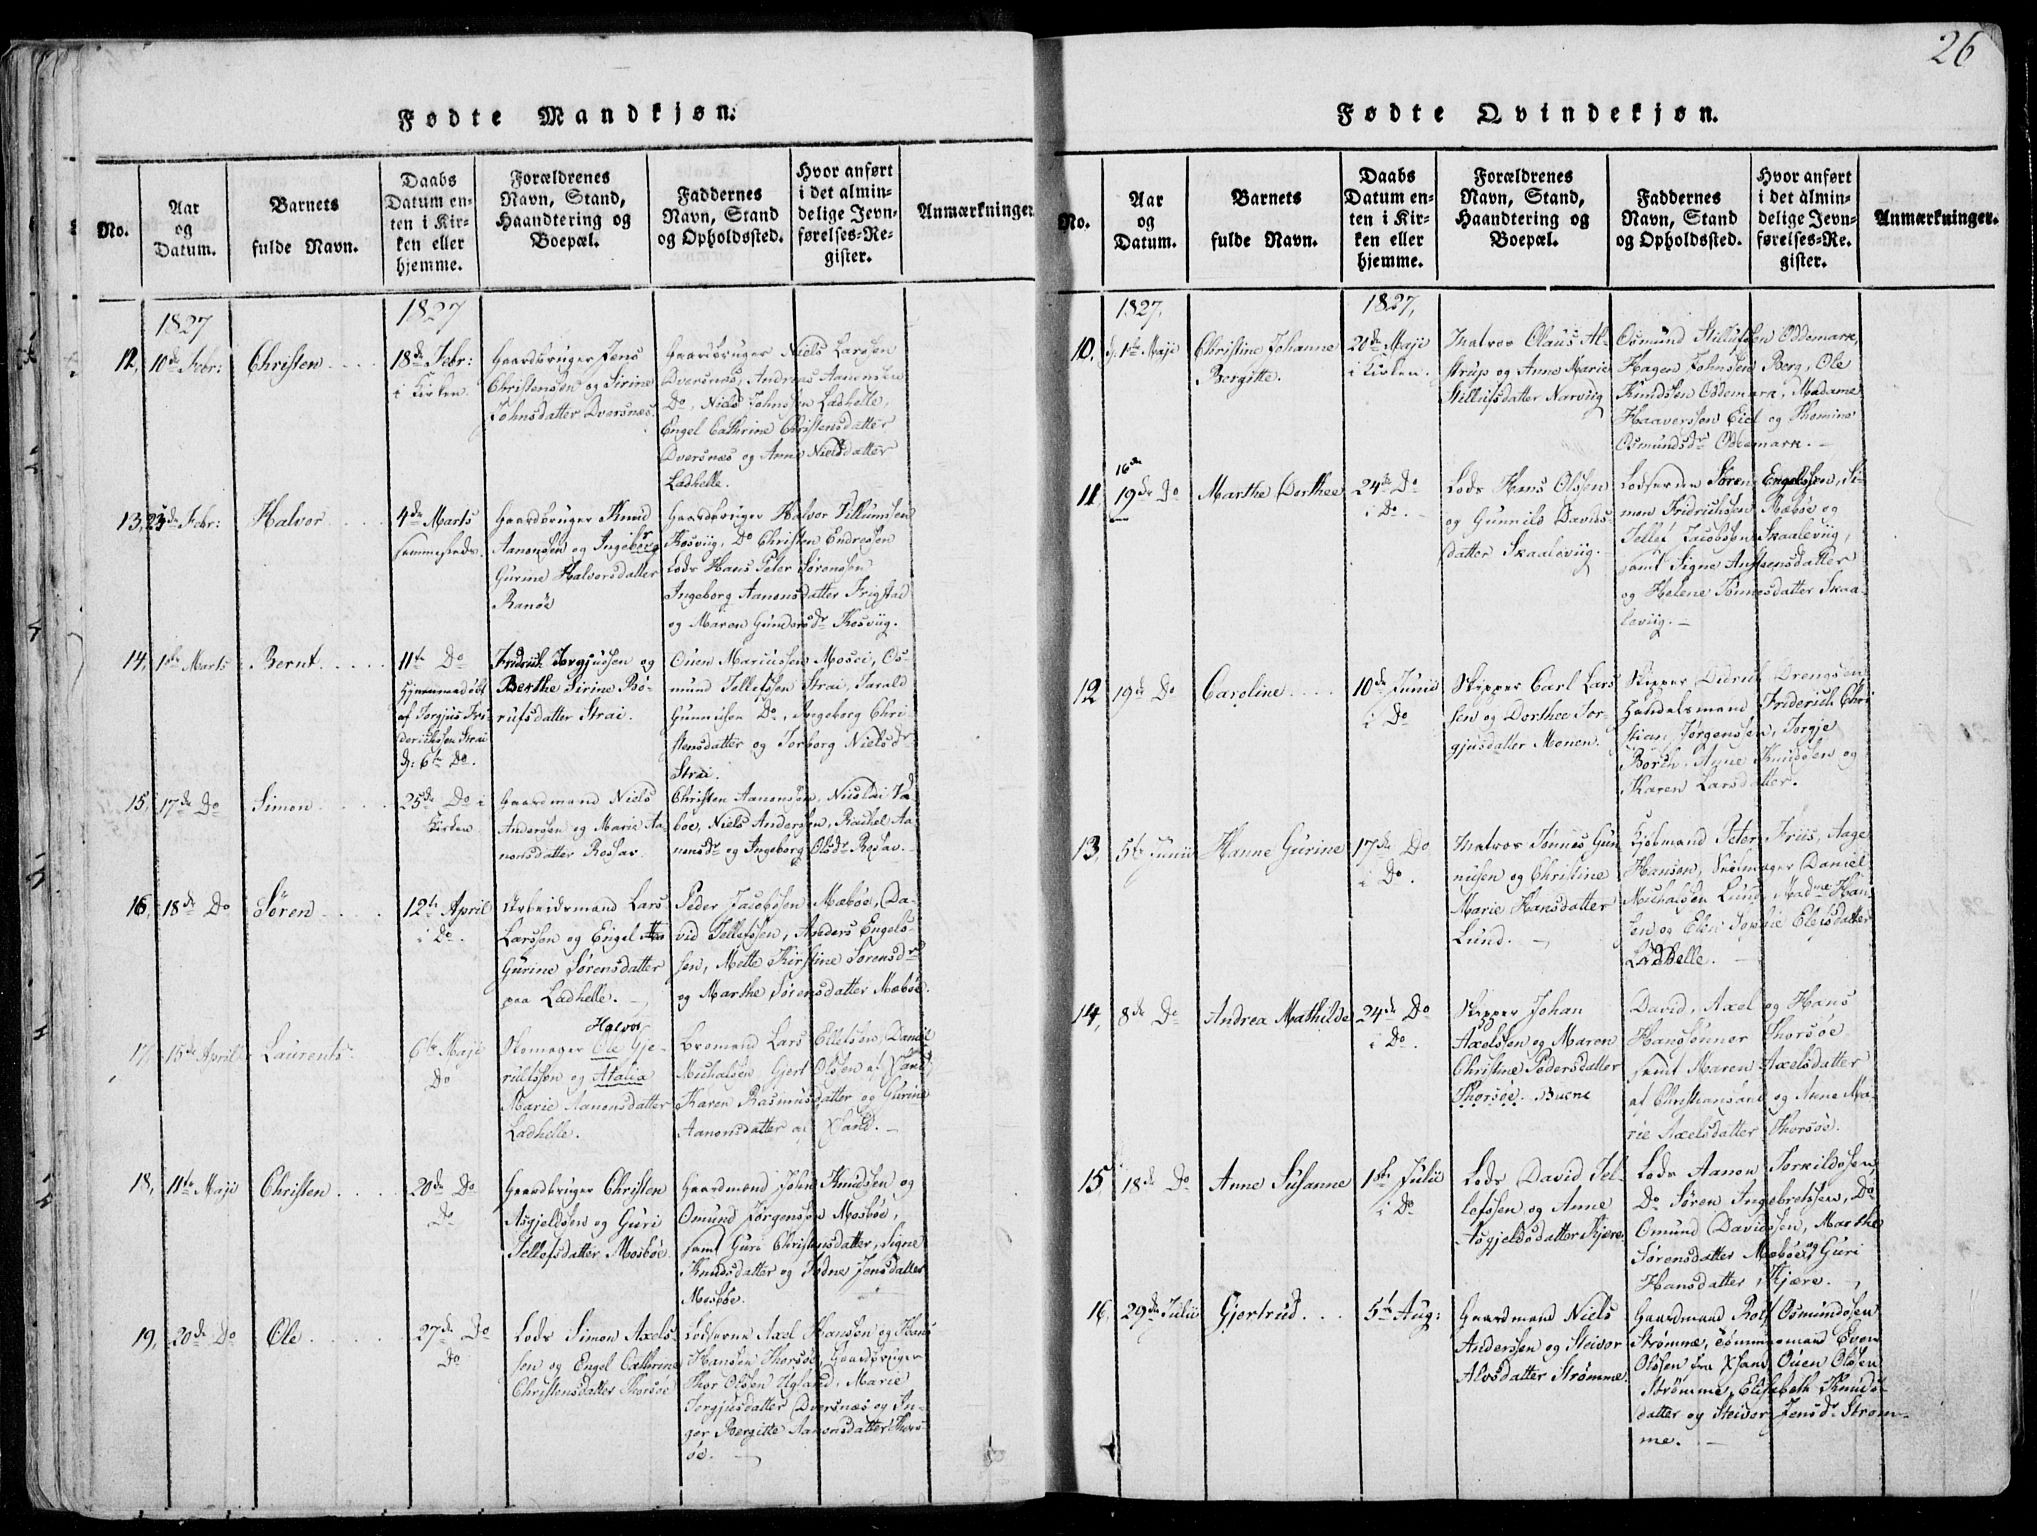 26
Fødte Mandkjøn.
No.
Aar
og
Datum.
Barnets
fulde Navn.
Daabs
Datum en-
ten i Kir-
ken eller
hjemme.
Forældrenes
Navn, Stand,
Haandtering og
Boepæl.
Faddernes
Navn, Stand
og Opholdssted.
Hvor anført
i det almin-
delige Jevn-
førelses-Re-
gister.
Anmærkninger
1827
1827
12, 10de Febr: Christen
18de Febr:
i Kirken.
Gaardbruger Jens
Christensen og Sirine
Johnsdatter Dversnæs.
Gaardbruger Niels Larssen
Dversnæs, Andreas Aanonsen
Do, Niels Johnsen Ladhelle,
Engel Cathrine Christensdatter
Dversnæs og Anne Nielsdatter
Ladhelle.
13, 23de Febr: Halvor
4de Marts
sammesteds.
Gaardbruger Knud
Aanonsen og Ingeborg
Gurine Halvorsdatter
Ranøe
Gaardbruger Halvor Villumsen
Kosviig, Do Christen Endresen
Lods Hans Peter Sørensen
Ingeborg Aanonsdatter Frigstad
og Maren Gundersdr Kosviig.
14, 1ste Marts Bernt
11te Do
Hjemmedøbt
af Torgjus Fri-
derichssen Strai
d: 6te Do.
Fridrich Torgjussen og
Berthe Sirine Bø-
rufsdatter Strai.
Ouen Mariussen Mosei, Os-
mund Tellefssen Strai, Tarald
Gunnufsen Do, Ingeborg Chri-
stensdatter og Torborg Nielsdr
Strai.
15, 17de Do Simon
25de Do i
Kirken
Gaardmand Niels
Anderssen og Marie Aa-
nonsdatter Rossav.
Christen Aanonsen, Nicolai Va-
boe, Niels Andersen, Rachel Aa-
nonsdr og Ingeborg Olsdr Rosav.
16, 18de Do Søren
12te April
i Do.
Arbeidsmand Lars
Larssen og Engel
Gurine Sørensdatter
paa Ladhelle.
Peder Jacobsen Mæbøe, Da-
vid Tellefssen, Anders Engels-
sen, Mette Kirstine Sørensdr
og Marthe Sørensdatter Mæbøe.
17, 15de April Laurents
6te Maji
Do
Halvor
Skomager Ole Gje-
rulfssøn og Atalia
Marie Aanonsdatter
Ladhelle.
Bromand Lars Ellefsen, Daniel
Michalsen, Gjert Olssen af Xsand
Karen Rasmusdatter og Gurine
Aanonsdatter af Xsand.
18, 11te Maji Christen
20de Do
Do
Gaardbruger Christen
Asgjeldsen og Guri
Tellefsdatter Mosbøe.
Gaardmand Joen Knudsen og
Omund Jørgenssen Mosbøe,
samt Guri Christensdatter, Signe
Knudsdatter og Jødne Jensdatter
Mosbøe.
19, 20de Do Ole
27de Do
Do
Lods Simon Axels-
sen og Engel Cathrine
Christensdatter Thorsøe
Lodserne Axel Hansen og Hans
Hansen Thorsøe, Gaardbruger
Thor Olssen Ugland, Marie
Torgjusdatter Dversnæs og In-
ger Bergitte Aanonsdatter Thors-
øe.
Fødte Qvindekjøn.
No.
Aar
og
Datum.
Barnets
fulde Navn.
Daabs
Datum en-
ten i Kir-
ken eller
hjemme.
Forældrenes
Navn, Stand,
Haandtering og
Boepæl.
Faddernes
Navn, Stand
og Opholdssted.
Hvor anført
i det almin-
delige Jevn-
førelses-Re-
gister.
Anmærkninger.
1827.
1827,
10, d. 1ste Maji Christine Johanne
Bergitte.
20de Maji
i Kirken.
Matros Olaus Al-
strup og Anne Marie
Stillufsdatter Narviig
Osmund Stillufsen Oddemark,
Hagen Johnsen Berg, Ole
Knudsen Oddemark, Madame
Haaverssen Eid og Thomine
Osmundsdr Oddemark.
16de
11, 19de Do Marthe Dorthee
24de Do
i Do.
Lods Hans Olssen
og Gunnild Davids-
datter Skaaleviig.
Lodserne Søren Engelssen, Si-
mon Fridrichsen Mæbøe og
Tellef Jacobsen Skaaleviig,
samt Signe Anstensdatter
og Helene Tønnesdatter Skaa-
leviig.
12 19de Do Caroline
10de Junii
i Do
Skipper Carl Lars
sen og Dorthee Tor-
gjusdatter Monen.
Skipper Didrich Drengsen,
Handelsmand Friderich Chri
stian Jørgenssen, Torgje
Borch, Anne Knudsen og
Karen Larsdatter.
13, 5te Junii Hanne Gurine
17de Do
i Do.
Matros Tønnes Gun
nufsen og Christine
Marie Hansdatter
Lund.
Kjøbmand Peter Friis, Aage
Hansen, Skomager Daniel
Michalsen Lund, Madme Han
sen og Elen Sophie Elefsdatter
Ladhelle.
14, 8de Do Andrea Mathilde
24de Do
i Do.
Skipper Johan
Axelssen og Maren
Christine Pedersdatter
Thorsøe. Buene
David, Axel og Hans
Hanssønner Thorsøe
samt Maren Axelsdatter
af Christiansand og Anne Ma-
rie Axelsdatter Thorsøe.
15, 18de Do Anne Susanne
1ste Julii
i Do
Lods David Tel-
lefssen og Anne
Asgjeldsdatter Kjære.
Lods Aanon Torkildssen,
Do Søren Ingebretssen, Do
Omund Davidssen, Marthe
Sørensdatter Mæbøe og Guri
Hansdatter Kjære.
16, 29de Julii Gjertrud
5te Aug:
Gaardmand Niels
Anderssen og Steivor
Alvsdatter Strømme
Gaardmand Rolf Osmundssen
Strømme, Tømmermand Even
Olssen fra Xsand, Ouen Olssen
Strømme, Elisabeth Knuds-
datter og Steivor Jensdr Strøm-
me.